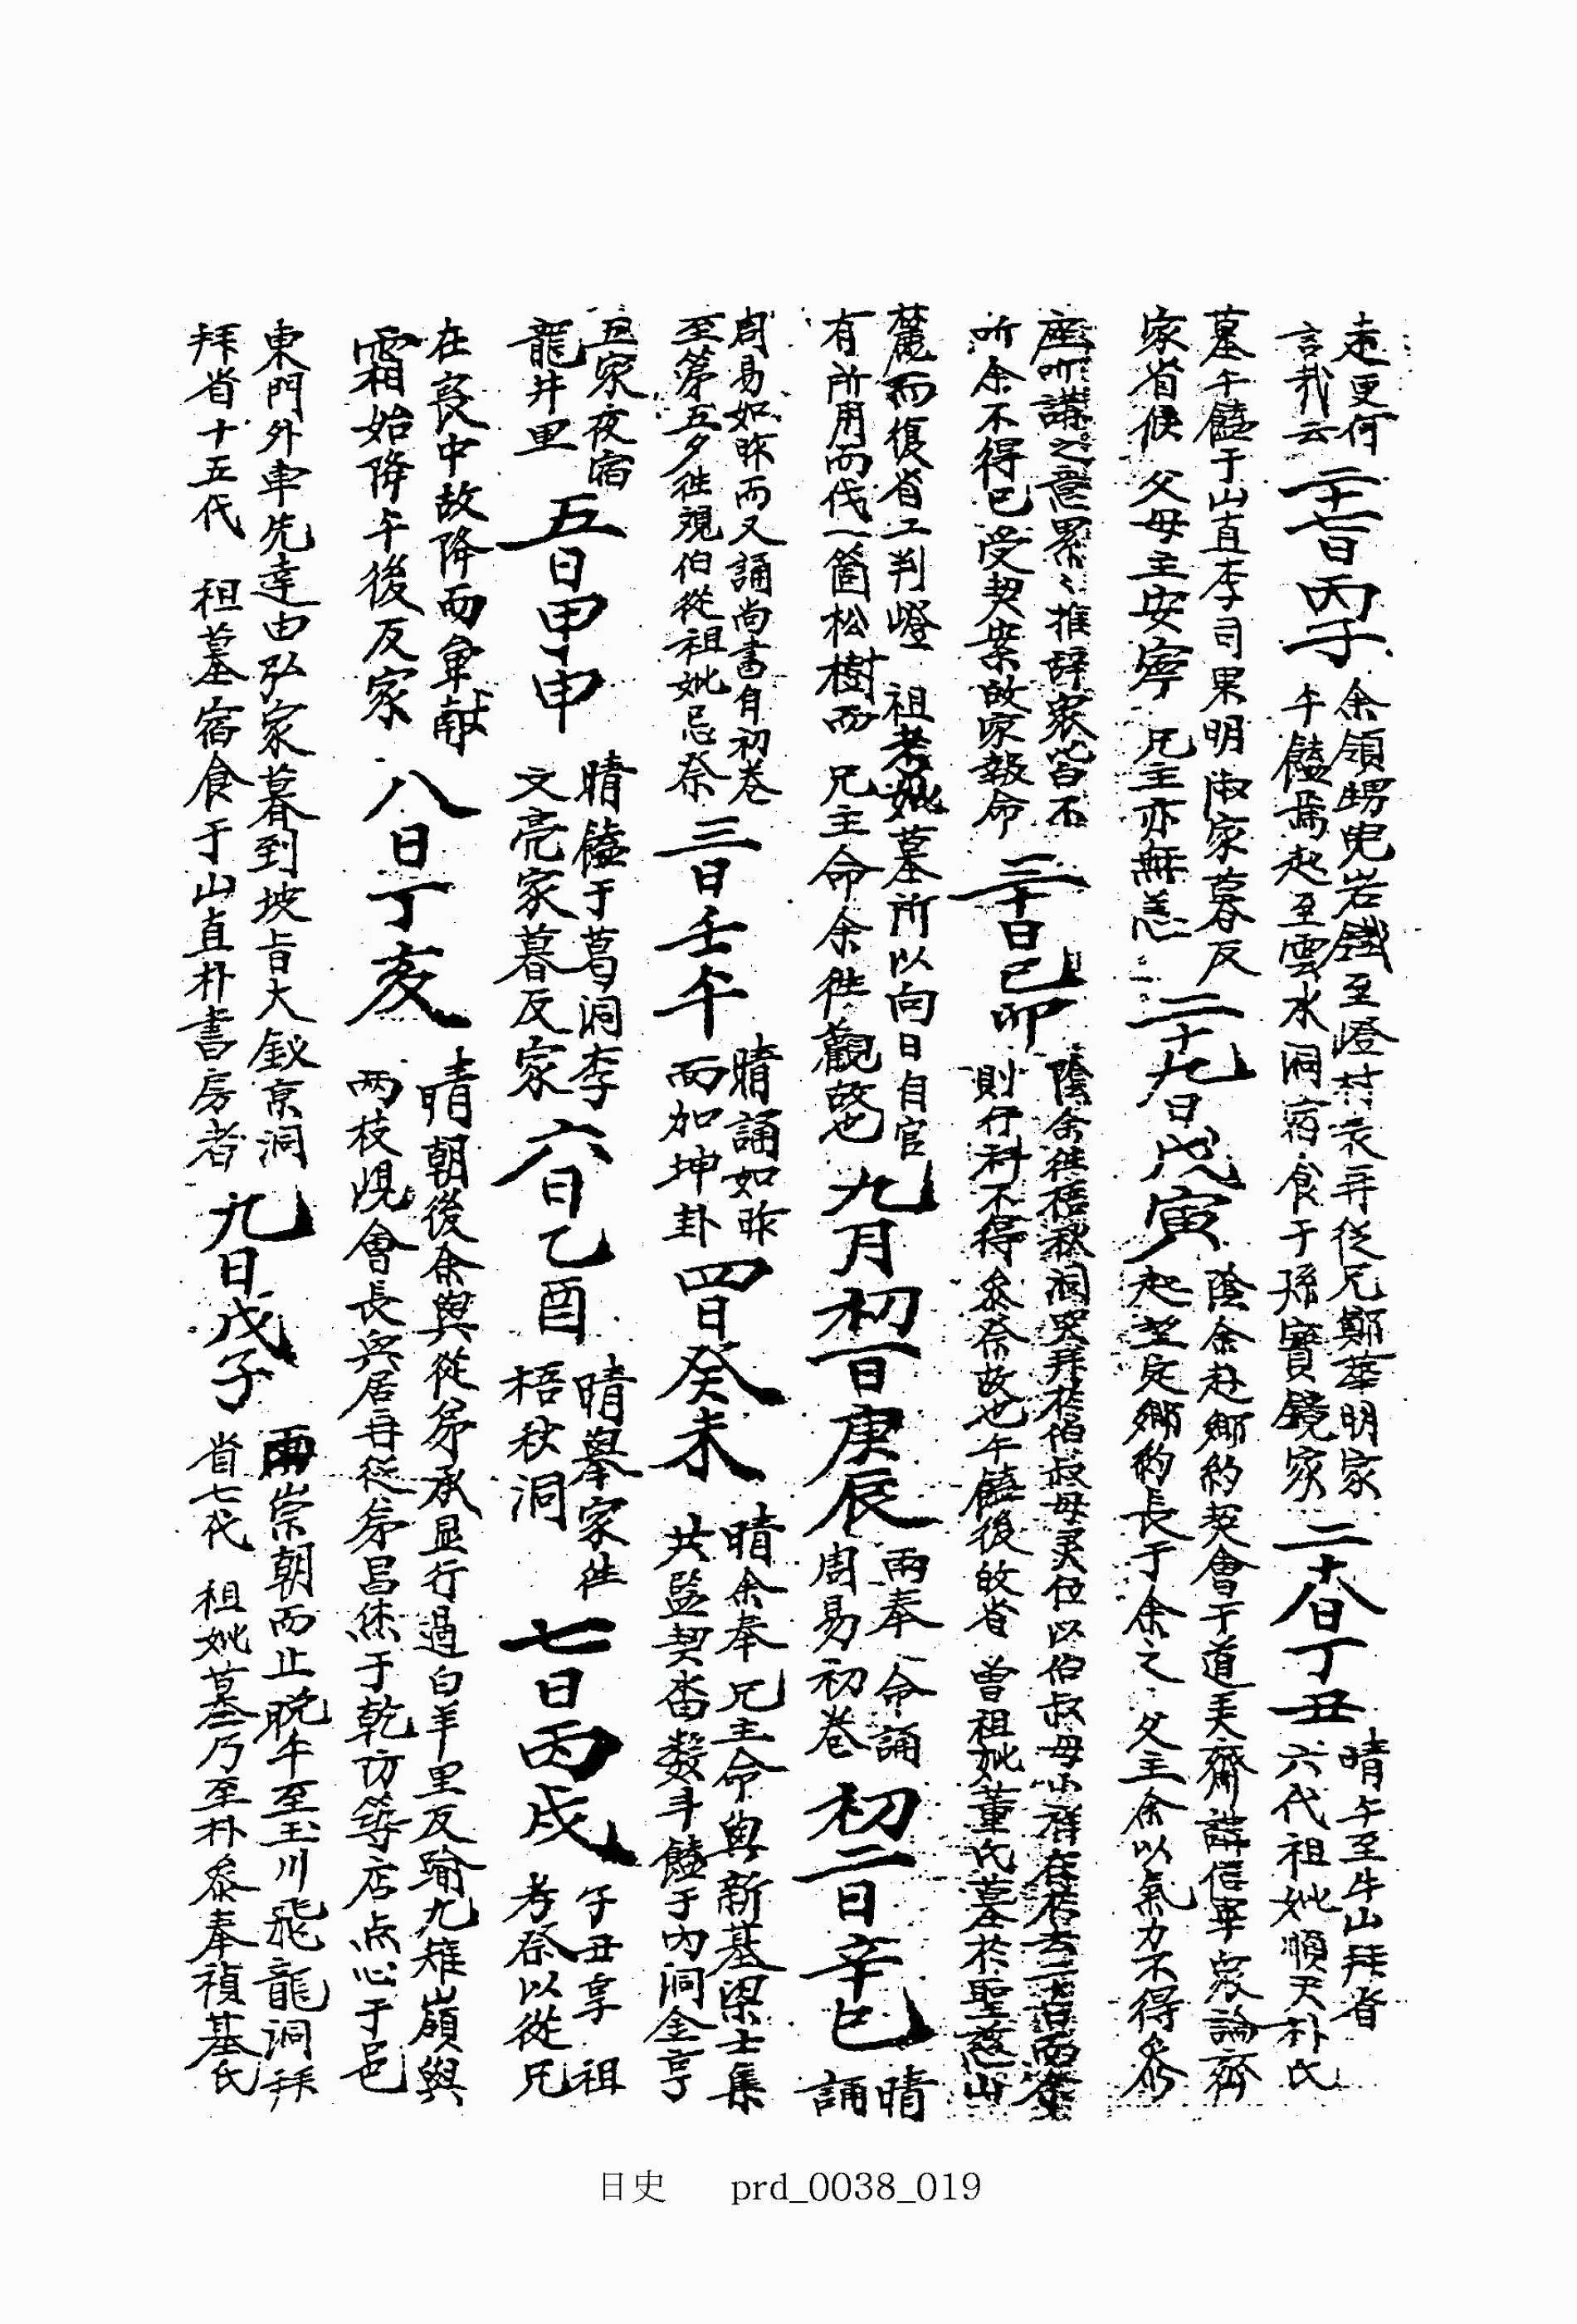 遠更何
言哉云
二十七日丙子
余領甥兒岩鐵至嶝村表再從兄鄭華明家
午饁焉起至雲水洞宿食于孫寶鏡家
二十八日丁丑
晴午至牛山拜省
六代祖妣順天朴氏
墓午饁于山直李司果明淑家暮反
家省候 父母主安寧 兄主亦無恙
二十九日戊寅
陰余赴鄕約契會于道美齋講信畢衆論齊
起望定鄕約長于余之 父主余以氣力不得參
座听講之意累〻推辞衆皆不
听余不得已受契案故家報命
三十日己卯
陰余徃梧秋洞哭拜於伯叔母灵位以伯叔母小祥在於去二十七日而余
則行科不得參祭故也午饁後改省 曾祖妣董氏墓於聖慈山
麓而復省工判嶝 祖考妣墓所以向日自官
有所用而伐一箇松樹而 兄主命余徃觀故也
九月初一日庚辰
雨奉 命誦
周易初卷
初二日辛巳
晴
誦
周易如昨而又誦尙書自初卷
至第五夕徃覌伯從祖妣忌祭
三日壬午
晴誦如昨
而加坤卦
四日癸未
晴余奉 兄主命與新基梁士集
共監契畓數斗饁于內洞金亨
五家夜宿
龍井里
五日甲申
晴饁于葛洞李
文亮家暮反家
六日乙酉
晴擧家徃
梧秋洞
七日丙戌
子丑享 祖
考祭以從兄
在哀中故降而单献
霜始降午後反家
八日丁亥
晴朝後余與從弟承显行過白羊里反踰九雉嶺與
两枝峴會長興居再從弟昌烋于乾访等店点心于邑
東門外車先達由弘家暮到坡旨大釵京洞
拜省十五代 祖墓宿食于山直朴書房者
九日戊子
雨崇朝而止晩午至玉川飛龍洞拜
省七代 祖妣墓乃至朴參奉禎基氏
日史 prd_0038_019